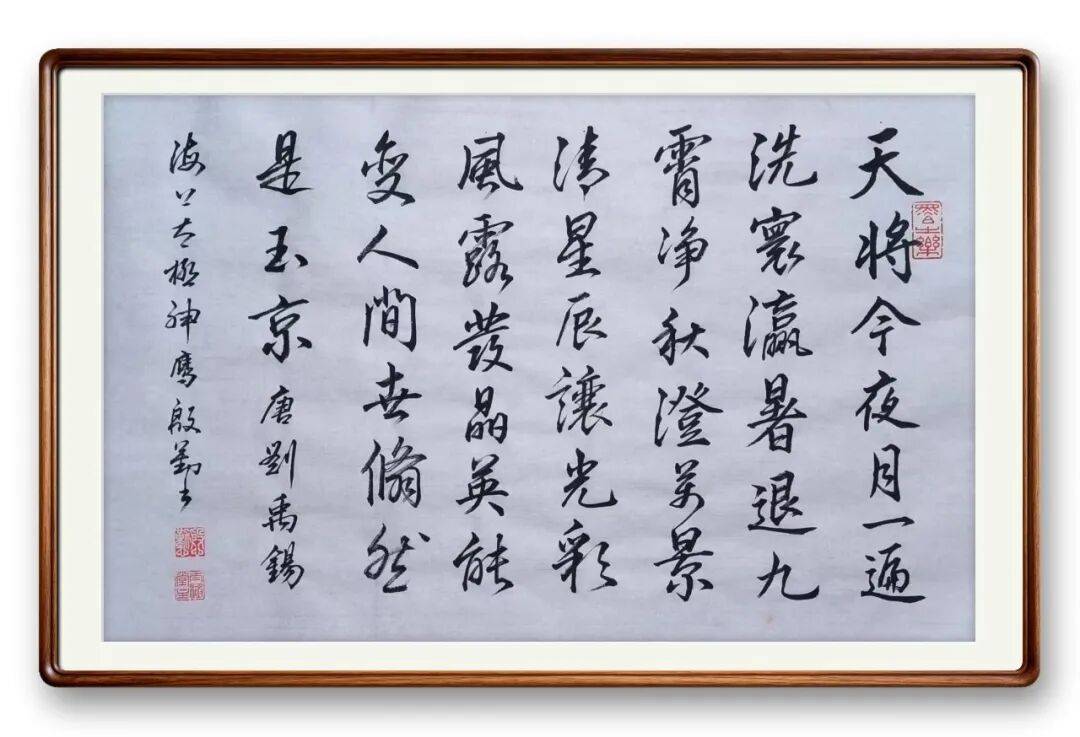 天将今夜月一遍
洗寰瀛暑退九
霄净秋澄万景
清星辰讓光彩
風露發晶英能
变人間世翛然
是玉京唐劉禹錫
海上太極神鹰殷勤书